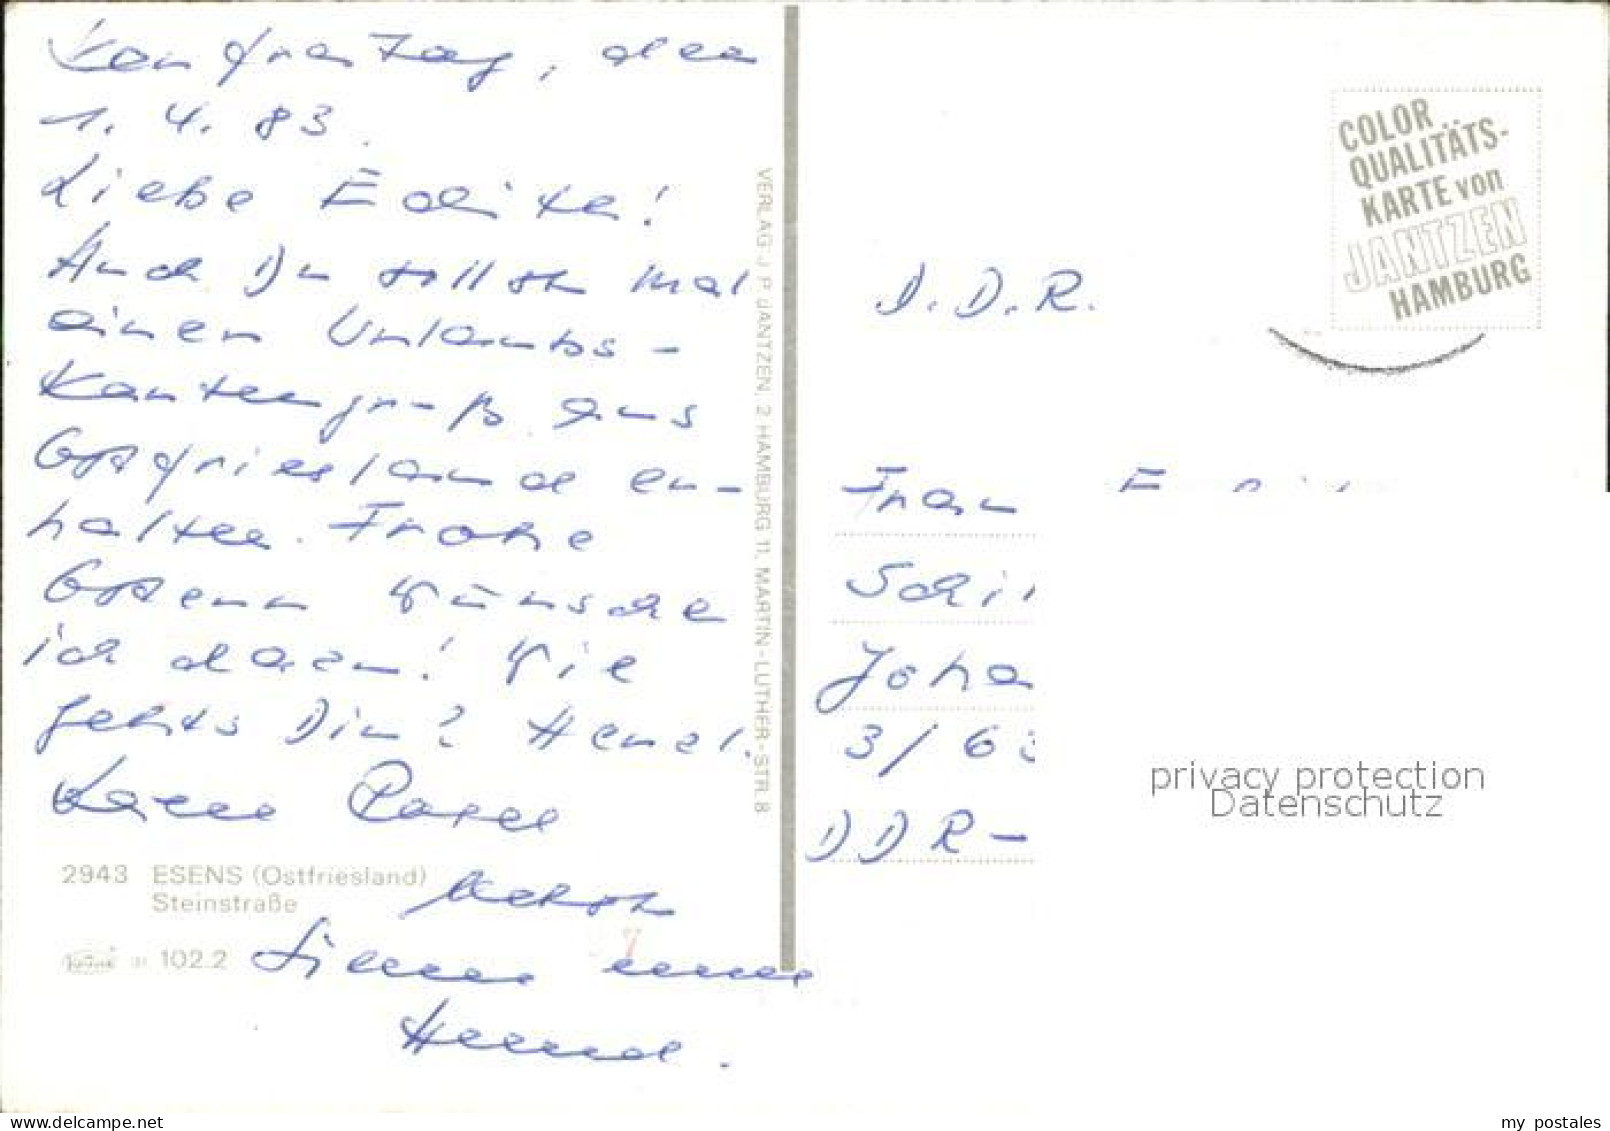 Karfreitag, den
1. 4. 83.
Liebe Edith!
Auch Du sollst mal
einen Urlaubs-
Kartengruß aus
Ostfriesland er-
halten. Frohe
Ostern wünsche
ich dazu! Wie
gehts Dir? Herzl.
nebst
und
Hund.
2943 ESENS (Ostfriesland)
Steinstraße
102.2
7
VERLAG J. P. JANTZEN, 2 HAMBURG 11, MARTIN-LUTHER-STR. 8
COLOR
QUALITÄTS-
KARTE von
JANTZEN
HAMBURG
D.D.R.
Frau
Schi
Joha
3/63
DDR-
privacy protection
Datenschutz
delcampe.net
my_postales